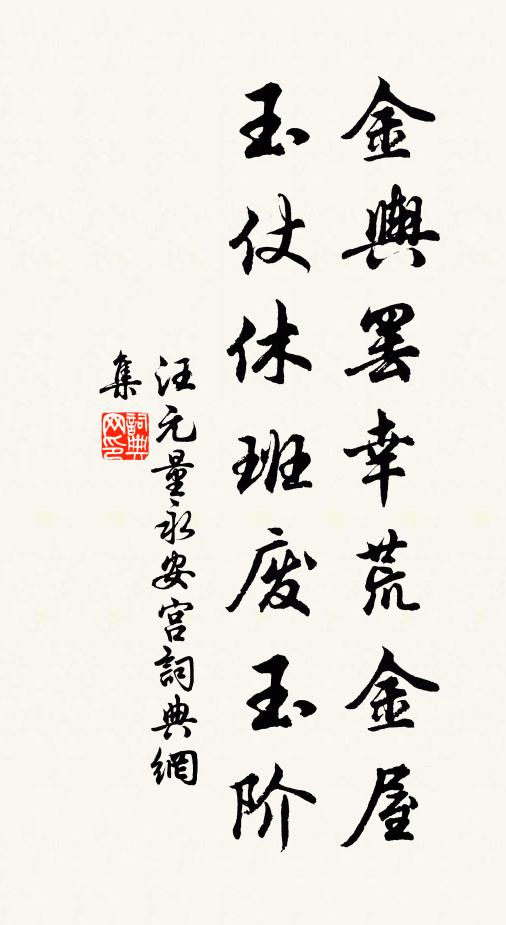 金輿罢幸荒金屋
玉仗休班废玉阶
汪元量永安宫詞典網
集
詞典网印